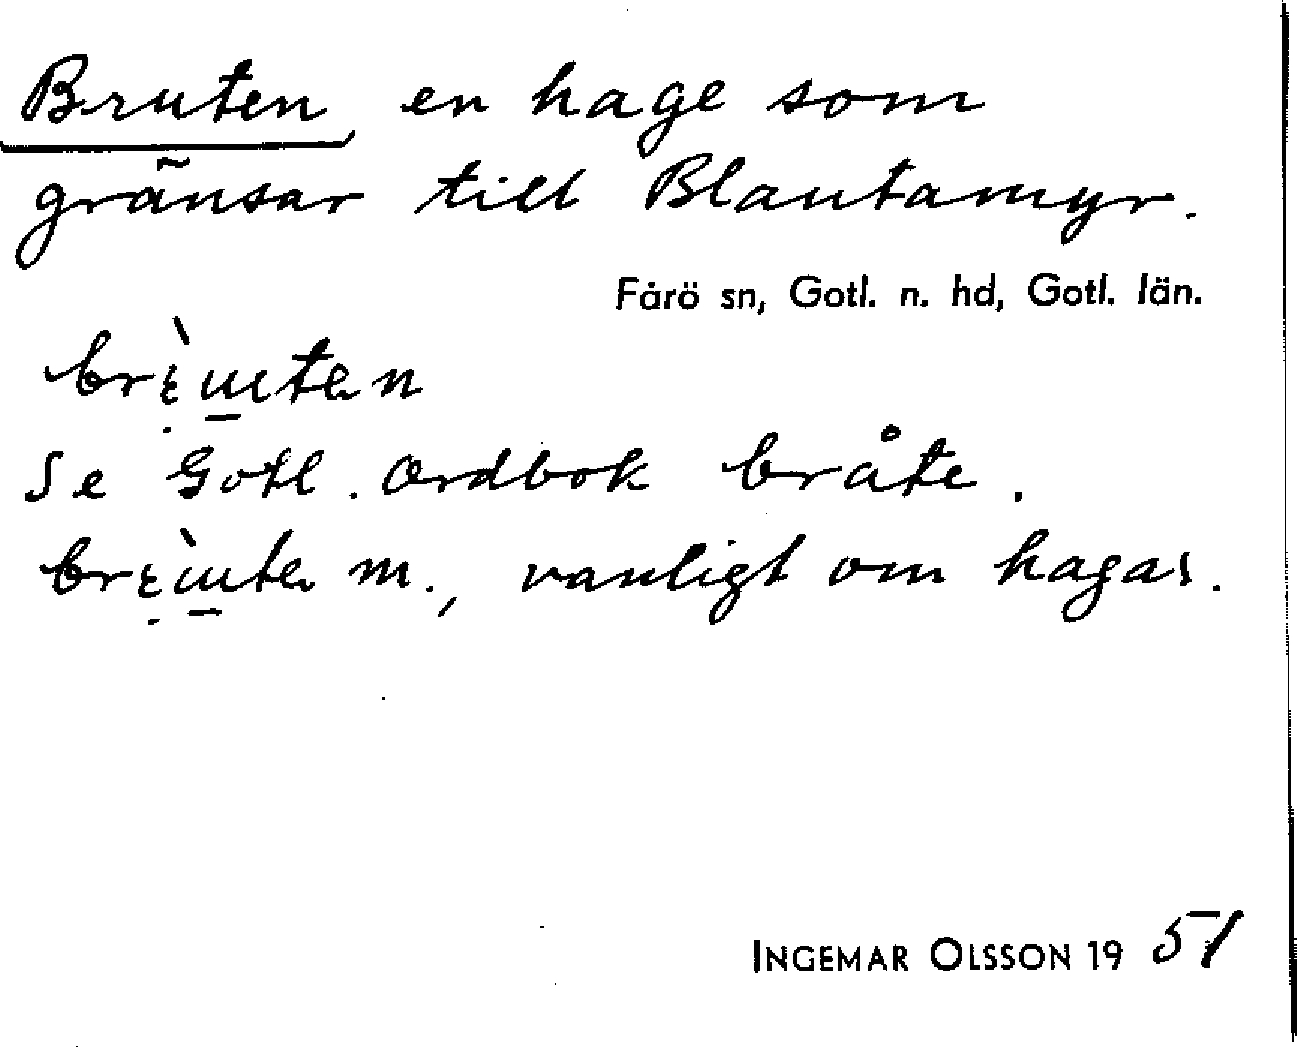 Bruten en hage som
gränsar till Blautamyr.
Fårö sn, Gotl. n. hd, Gotl. län.
Se Gotl. Ordbok bråte.
m., vanligt om hagar.
INGEMAR OLSSON 1951